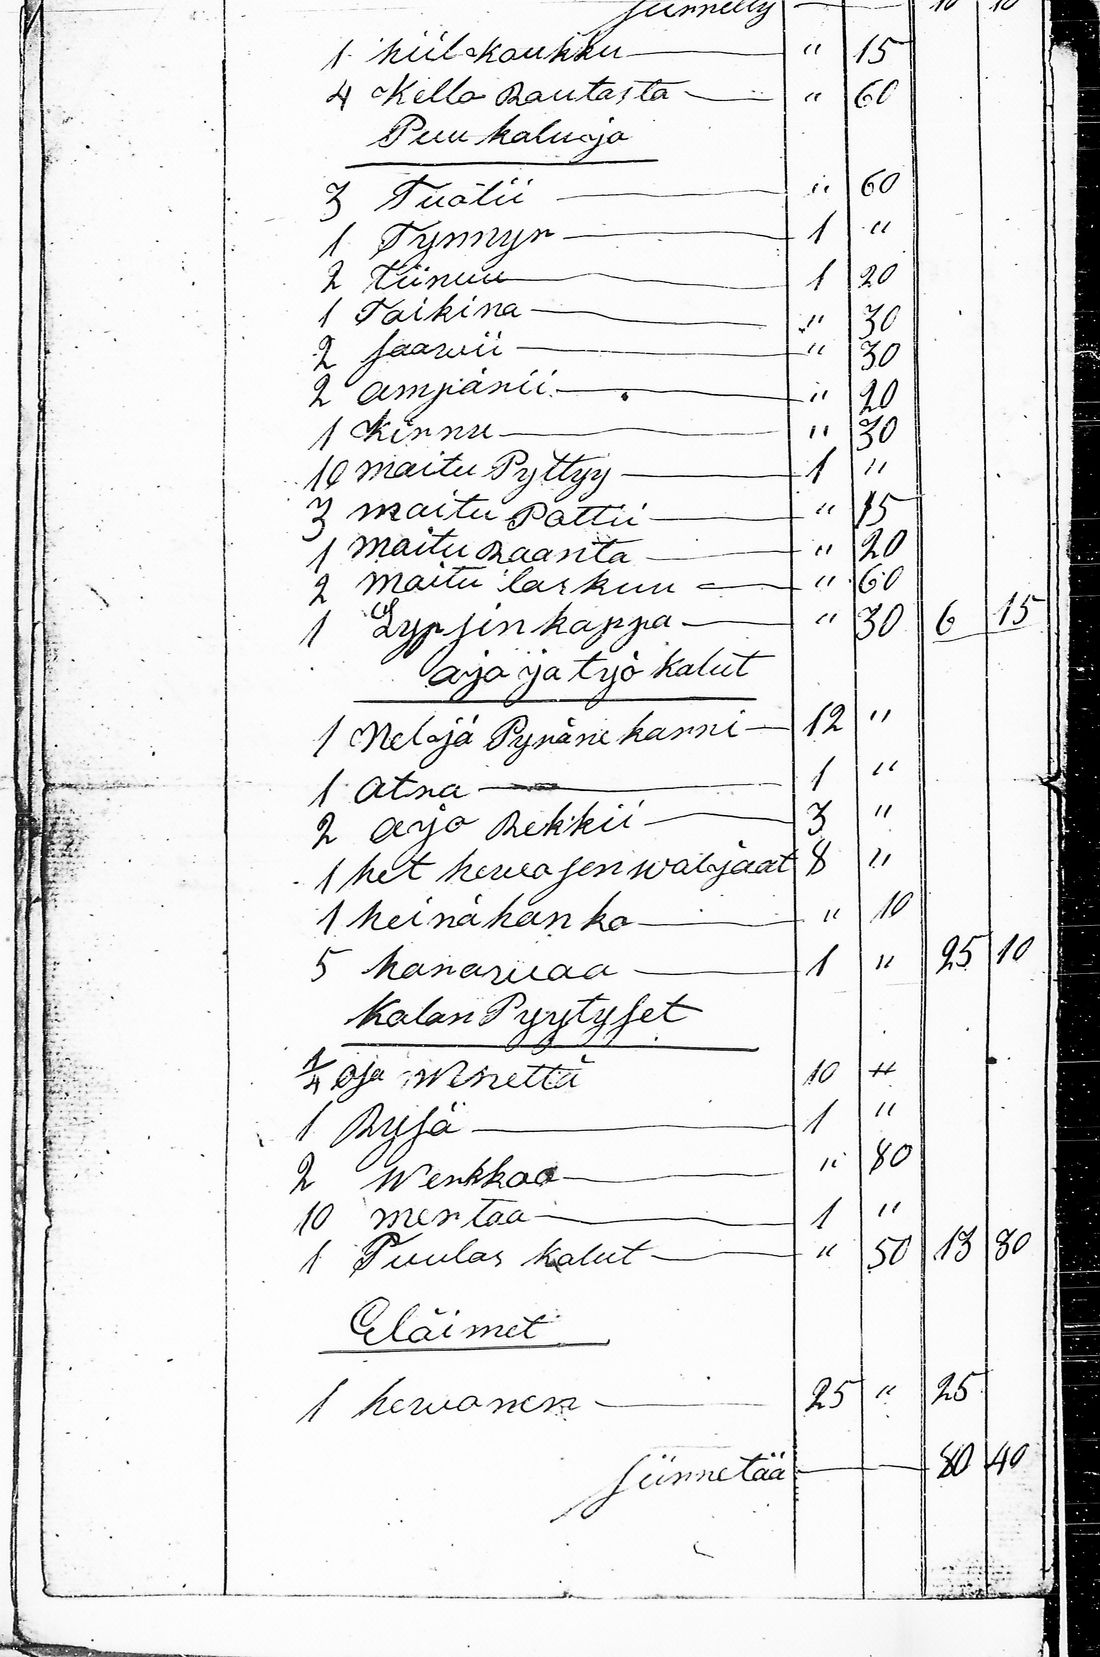 Siirretty — 10 10
1 hiil koukku — " 15
4 Kello Rautasta — " 60
Puu kaluja
3 Tuolii — " 60
1 Tynnyr — 1 "
2 tiinuu — 1 20
1 Taikina — " 30
2 saawii — " 30
2 ampärii — " 20
1 kirnu — " 30
10 maitu Pyttyy — 1 "
3 maitu Pottii — " 15
1 maitu Raanta — " 20
2 maitu laskuu — " 60
1 Lypsinkappa — " 30 6 15
ajo ja työ kalut
1 Neljä Pyräne karri — 12 "
1 atra — 1 "
2 ajo Rekkii — 3 "
1 het hewosenwaljaat 8 "
1 heinähanko — " 10
5 harawaa — 1 " 25 10
Kalan Pyytyset
1/4 osa Wnettä 10 "
1 Rysä — 1 "
2 Werkkoo — " 80
10 mertaa — 1 "
1 Tuulas kalut — " 50 13 30
Eläimet
1 hewonen — 25 " 25
Siirretää — 80 40